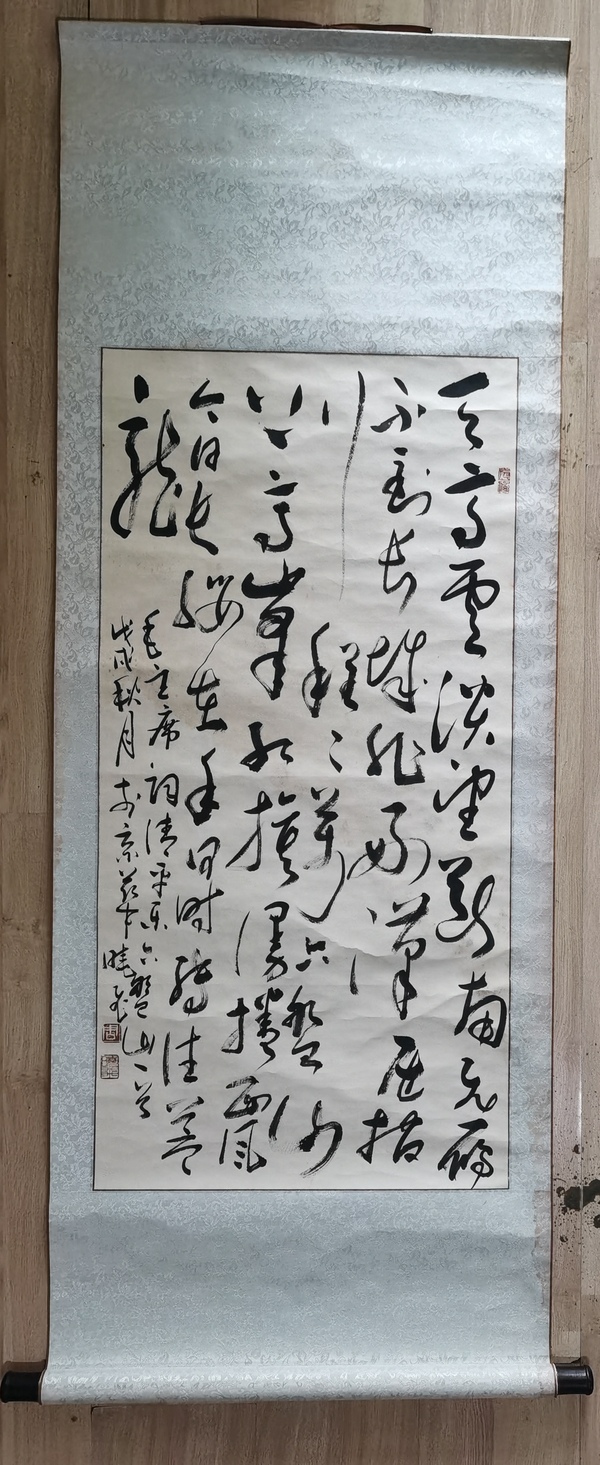 天高雲淡望斷南飛雁
不到長城非好漢屈指
行程二萬六盤山
上高峯紅旗漫捲西風
今日長纓在手何時縛住蒼
龍
毛主席詞清平樂六盤山一首
戊戌秋月於京華